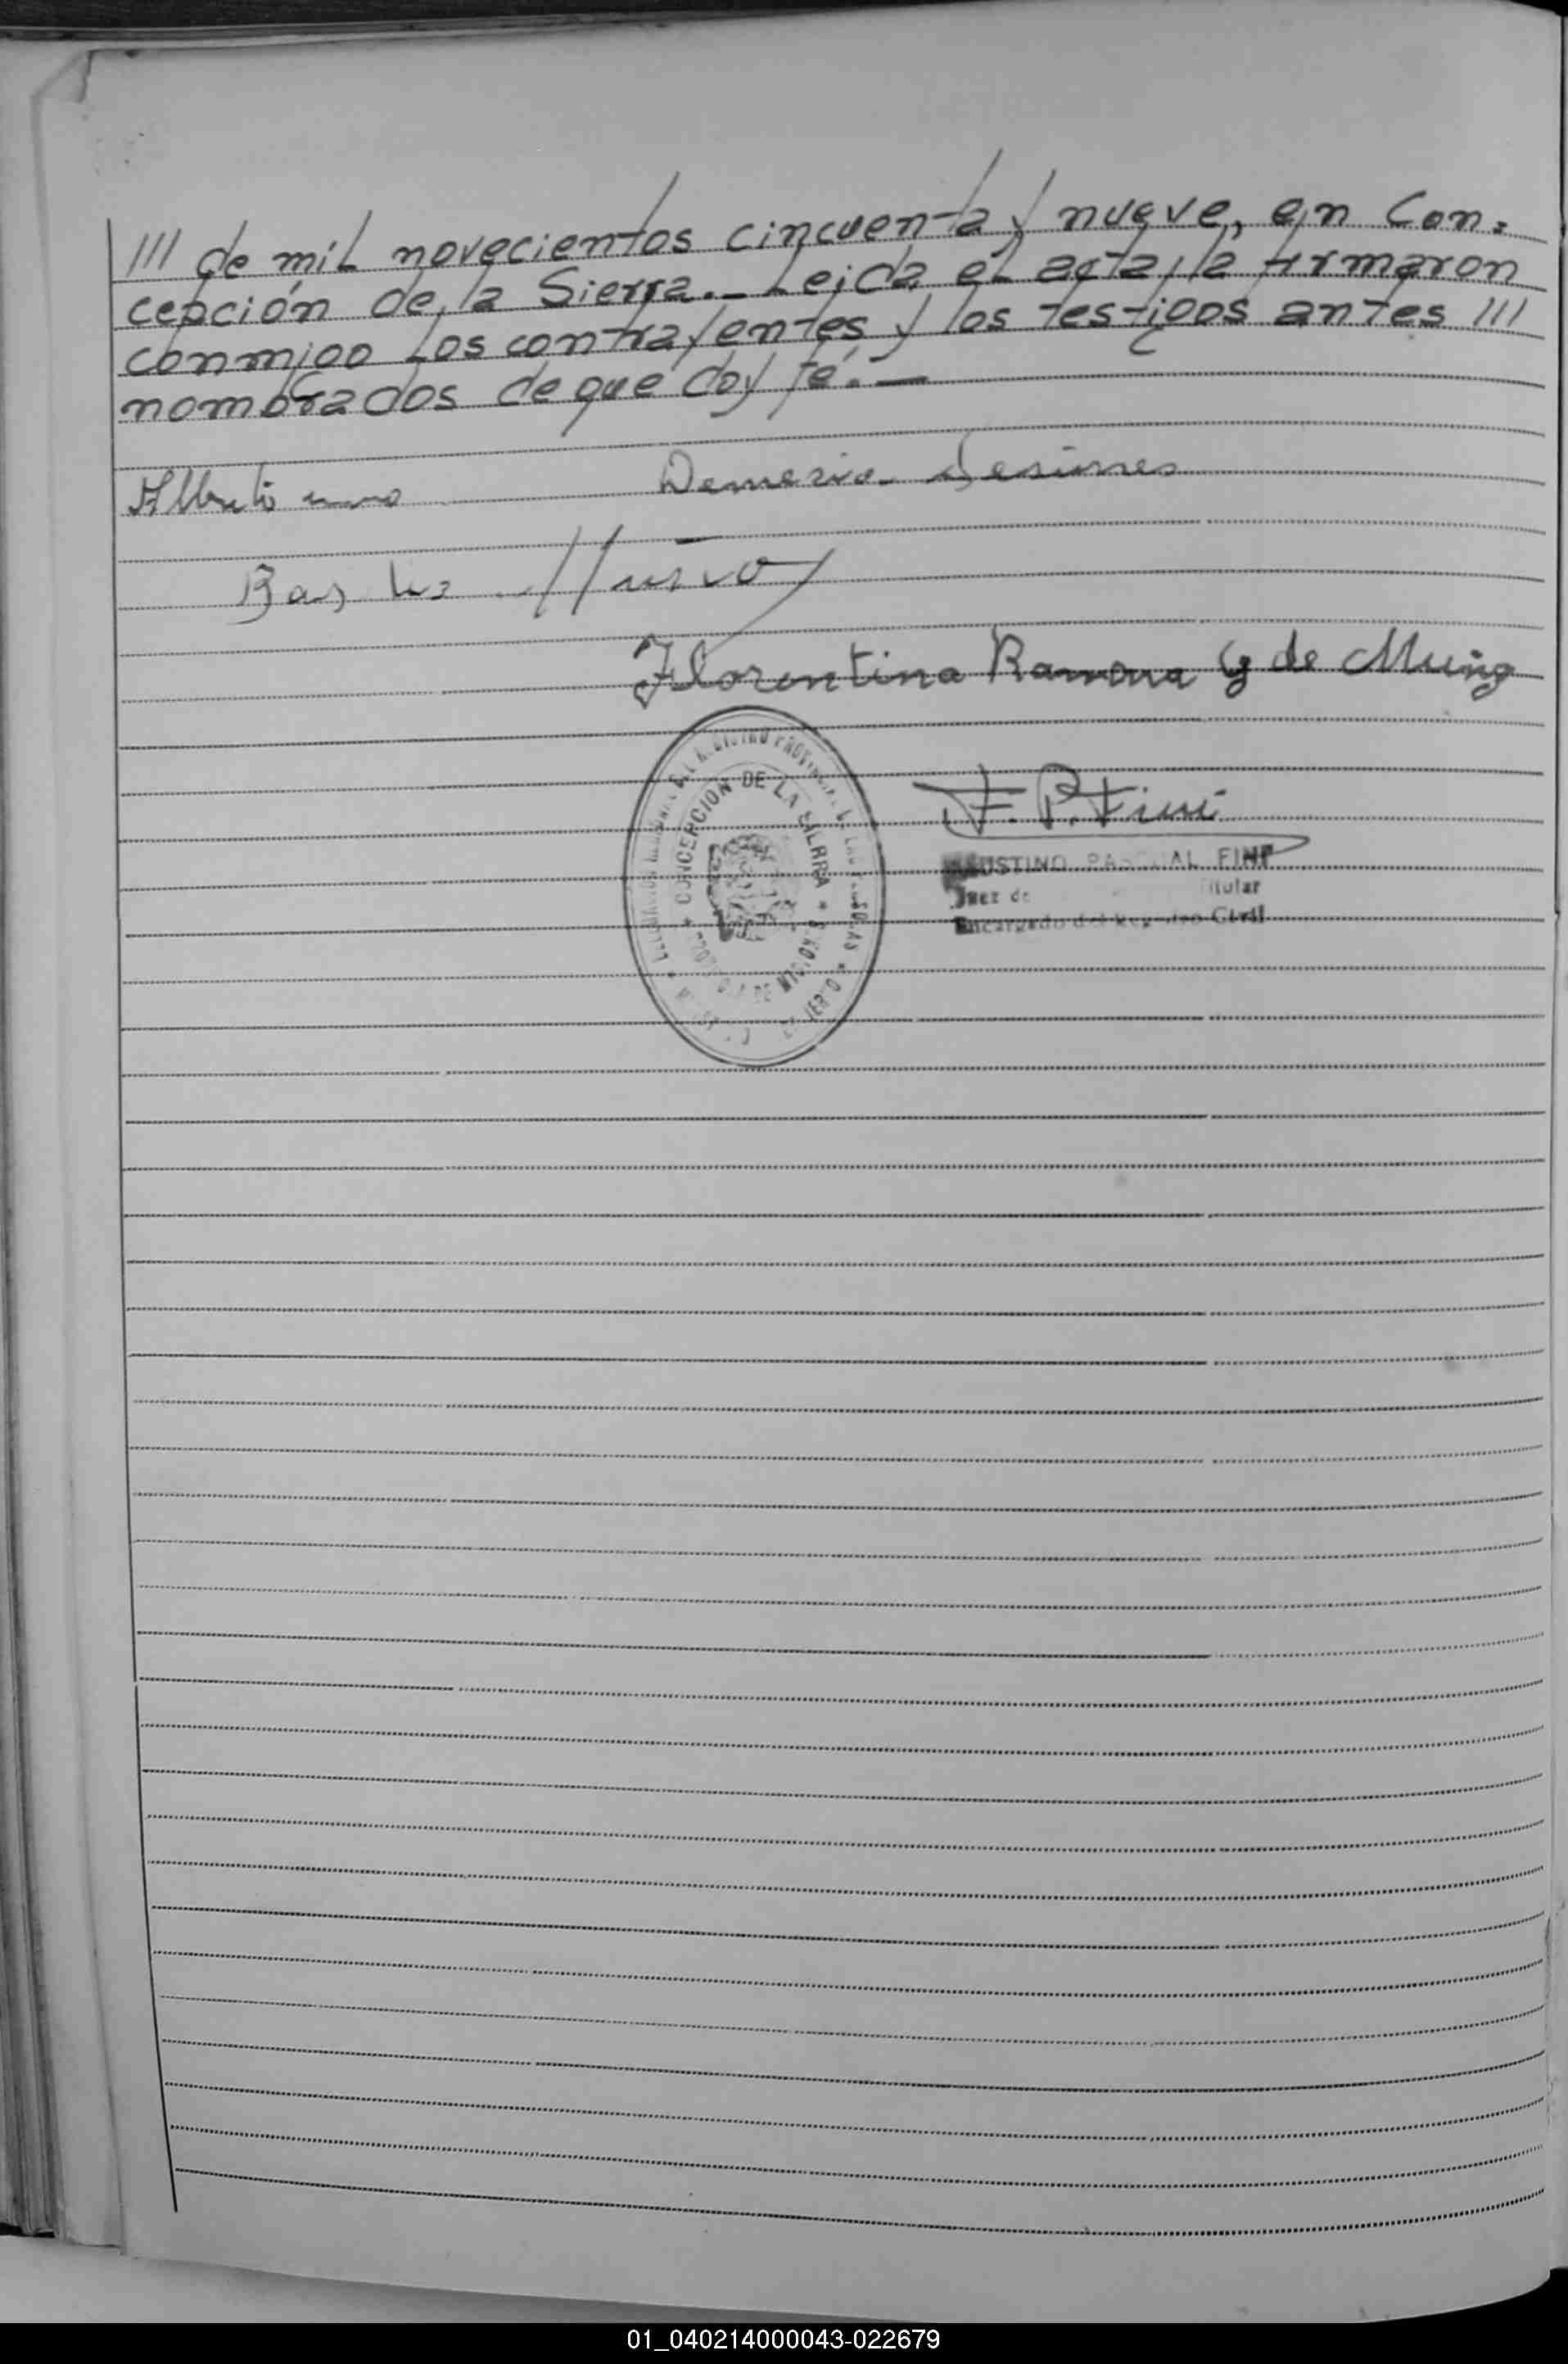 /// de mil novecientos cincuenta y nueve, en Con-
cepción de la Sierra.- Leida el acta, la firmaron
conmigo los contrayentes y los testigos antes ///
nombrados de que doy fé.-
Alberto
Florentina Ramona G de Muñoz
CONCEPCION DE LA SIERRA
F. P. Fini
AGUSTINO PASCUAL FINI
Juez de Titular
Encargado del Registro Civil
01_040214000043-022679